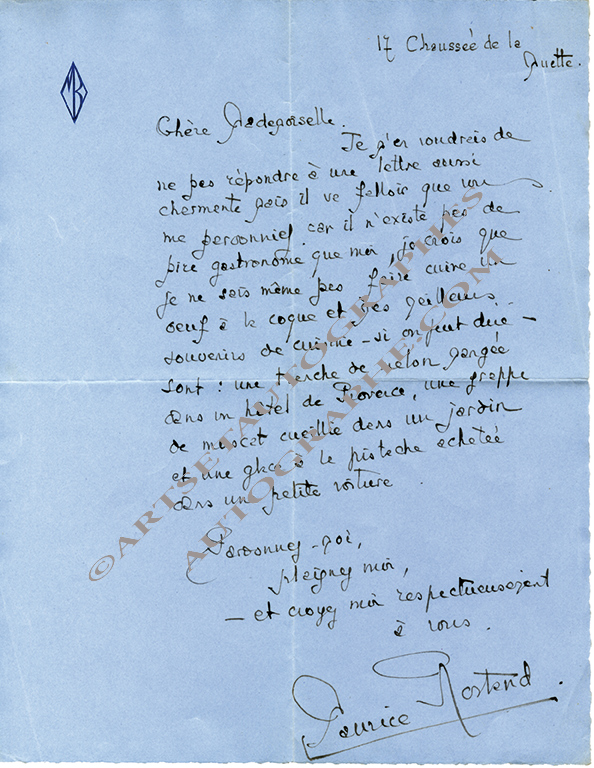 17 Chaussée de la
Muette.
MR
Chère Mademoiselle.
Je m'en voudrais de
ne pas répondre à une lettre aussi
charmante mais il va falloir que vous
me pardonniez car il n'existe pas de
pire gastronome que moi, je crois que
je ne sais même pas faire cuire un
oeuf à la coque et mes meilleurs
souvenirs de cuisine – si on peut dire –
sont : une tranche de melon mangée
dans un hôtel de Provence, une grappe
de muscat cueillie dans un jardin
et une glace à la pistache achetée
dans un petite voiture.
Pardonnez-moi,
plaignez moi,
– et croyez moi respectueusement
à vous.
Maurice Rostand.
©ARTSETAUTOGRAPHES
AUTOGRAPHE.COM